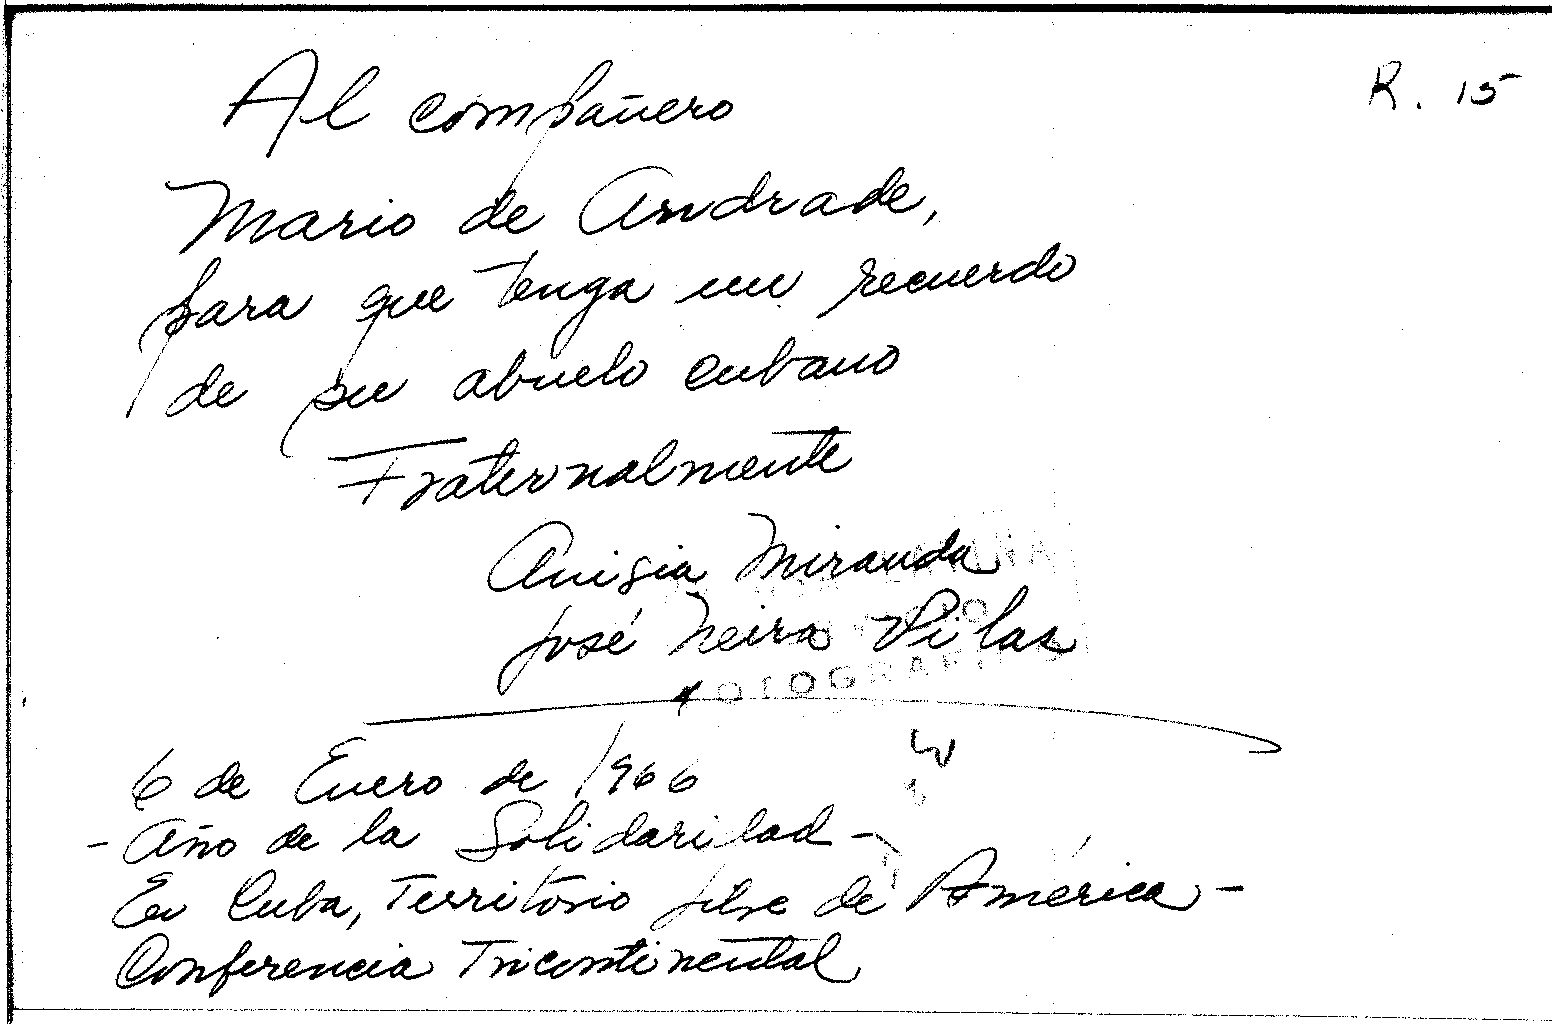 R. 15
Al compañero
Mario de Andrade,
para que tenga un recuerdo
de su abuelo cubano
Fraternalmente
Anisia Miranda
José Neira Vilas
6 de Enero de 1966
- Año de la Solidaridad -
En Cuba, Territorio libre de América -
Conferencia Tricontinental